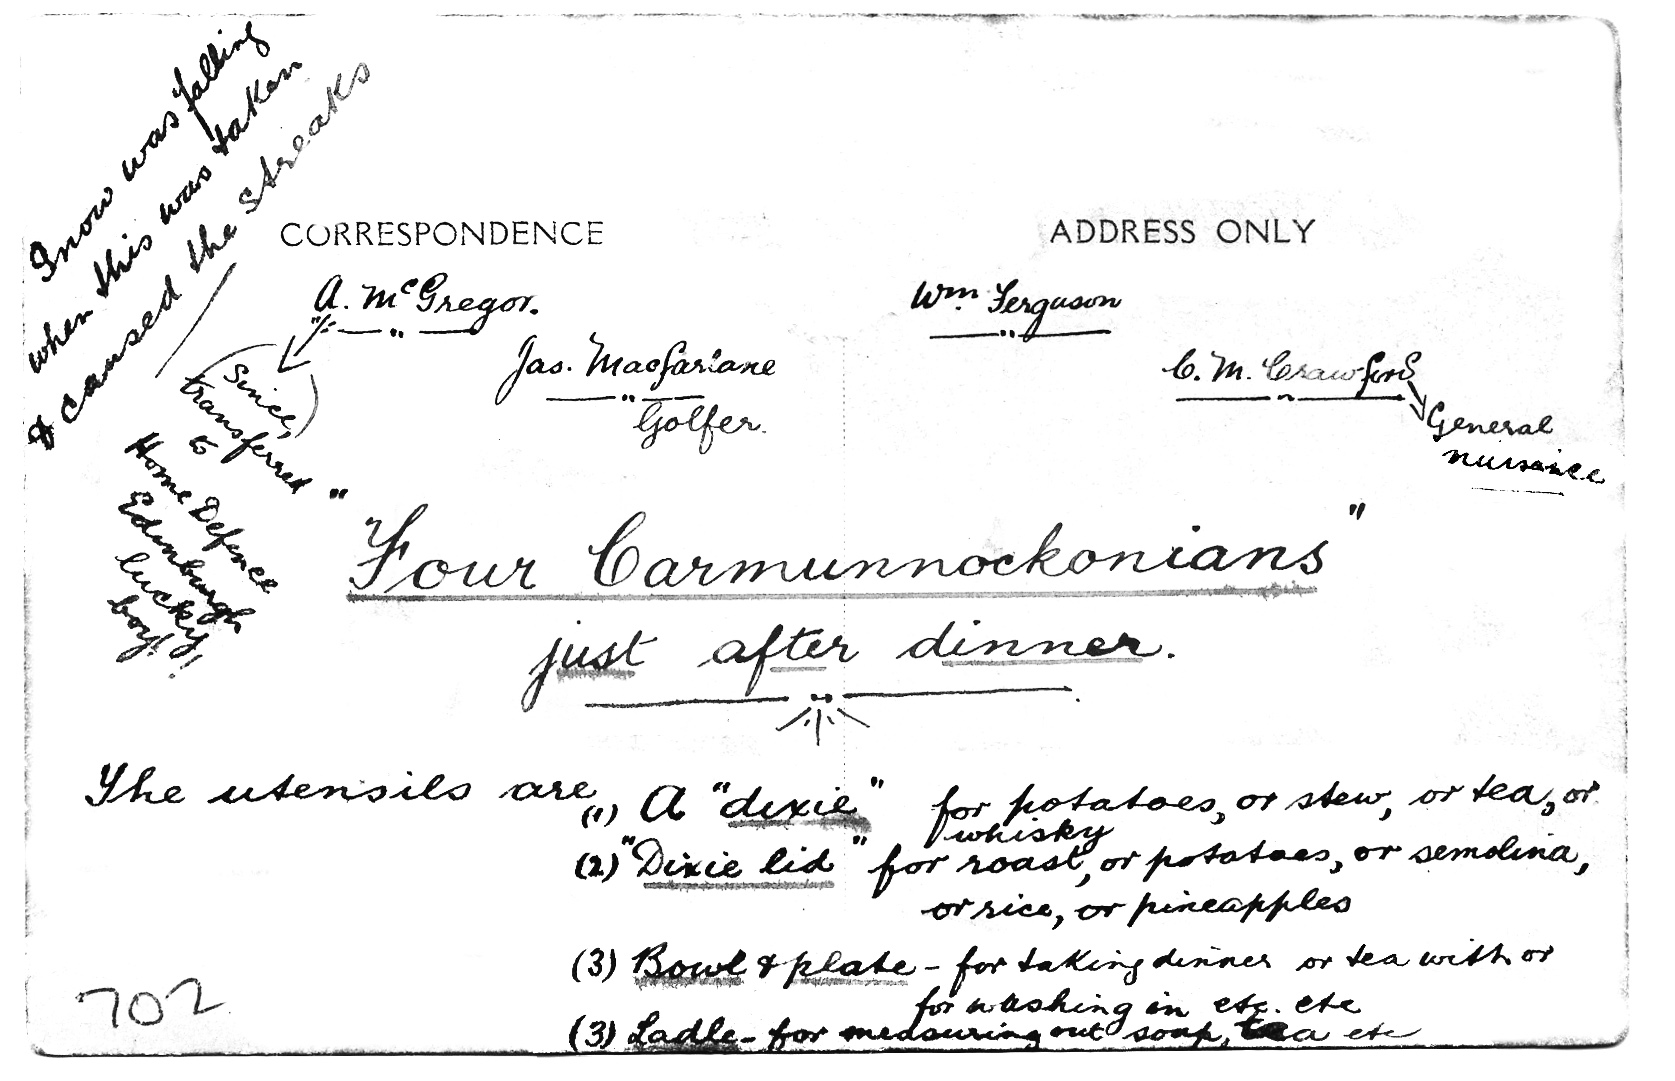 Snow was falling
when this was taken
& caused the streaks
CORRESPONDENCE
ADDRESS ONLY
A. McGregor.
Wm. Ferguson
Jas. Macfarlane
Golfer.
C. M. Crawford
General
nuisance
(Since,)
transferred
to
Home Defence
Edinburgh
lucky
boy!!!
"Four Carmunnockonians"
just after dinner.
The utensils are,
(1) A "dixie" for potatoes, or stew, or tea, or
whisky
(2) "Dixie lid" for roast, or potatoes, or semolina,
or rice, or pineapples
(3) Bowl & plate - for taking dinner or tea with or
for washing in etc. etc
(3) Ladle - for measuring out soup, tea etc
702